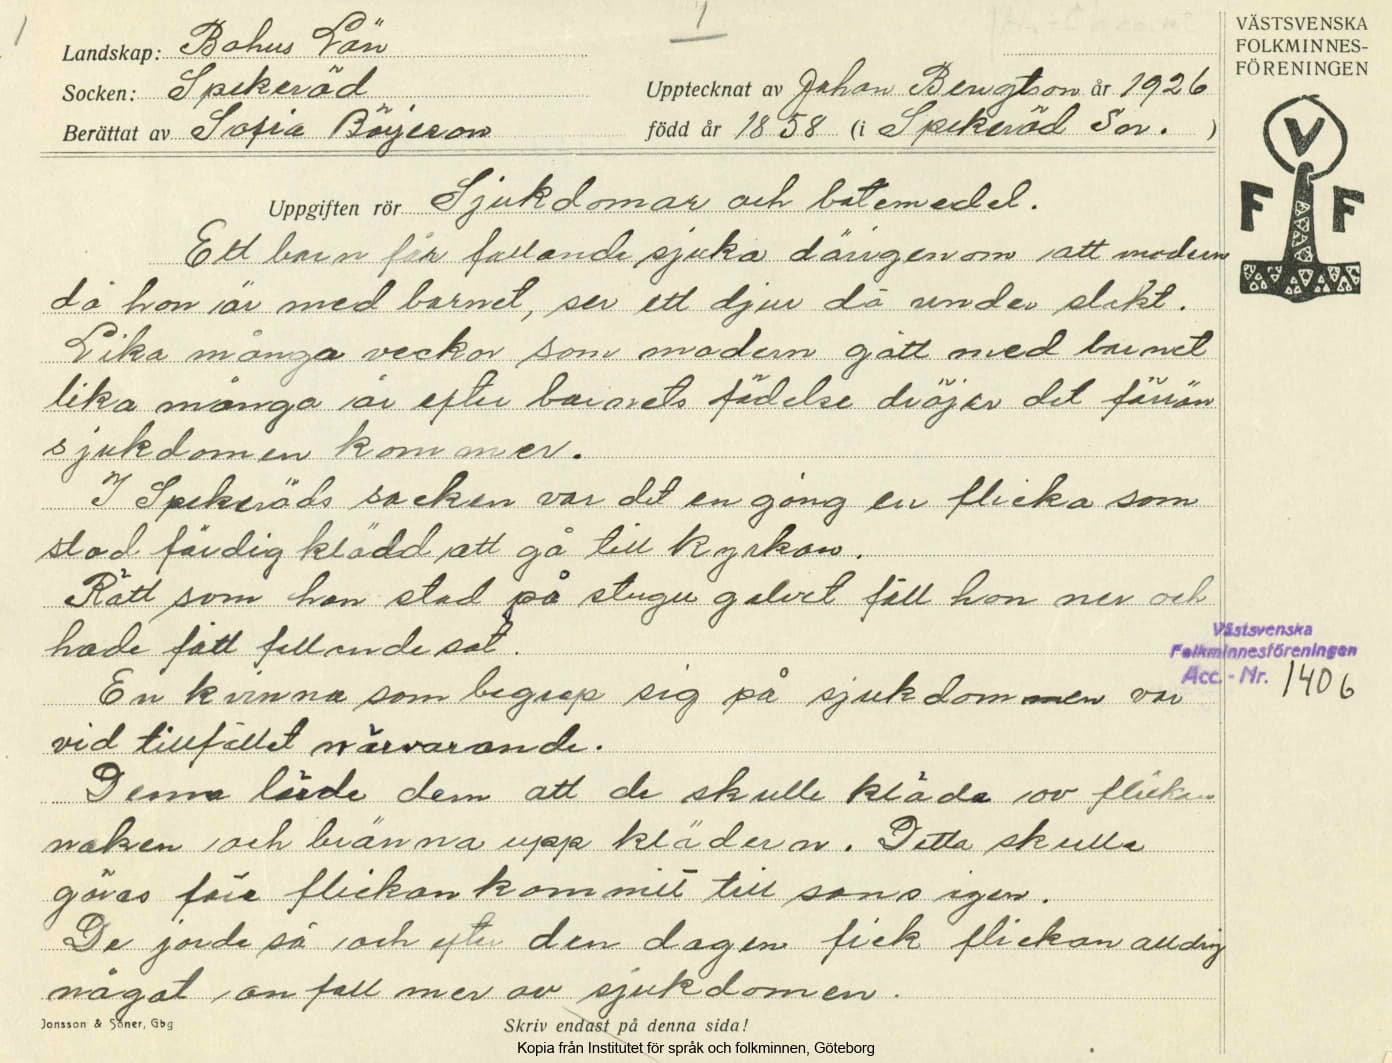 1
1
Landskap: Bohus Län
Socken: Spekeröd
Berättat av Sofia Böjeson
Upptecknat av Johan Bengtson år 1926
född år 1858 (i Spekeröd Sn. )
Uppgiften rör Sjukdomar och botemedel.
Ett barn får fallande sjuka därigenom att modern
då hon är med barnet, ser ett djur då under slakt.
Lika många veckor som modern gått med barnet
lika många år efter barnets födelse dröjer det förrän
sjukdomen kommer.
I Spekeröds socken var det en gång en flicka som
stod färdig klädd att gå till Kyrkan.
Rätt som hon stod på stugu golvet föll hon ner och
hade fått fallandesot.
En kvinna som begrep sig på sjukdommen var
vid tillfället närvarande.
Denna lärde dem att de skulle kläda av flickan
naken och bränna upp klädern. Detta skulle
göras före flickan kommitt till sans igen.
De jorde så och efter den dagen fick flickan alldrig
något anfall mer av sjukdomen.
Jonsson & Söner, Gbg
Skriv endast på denna sida!
VÄSTSVENSKA
FOLKMINNES-
FÖRENINGEN
V
F F
Västsvenska
Folkminnesföreningen
Acc. - Nr. 1406
Kopia från Institutet för språk och folkminnen, Göteborg